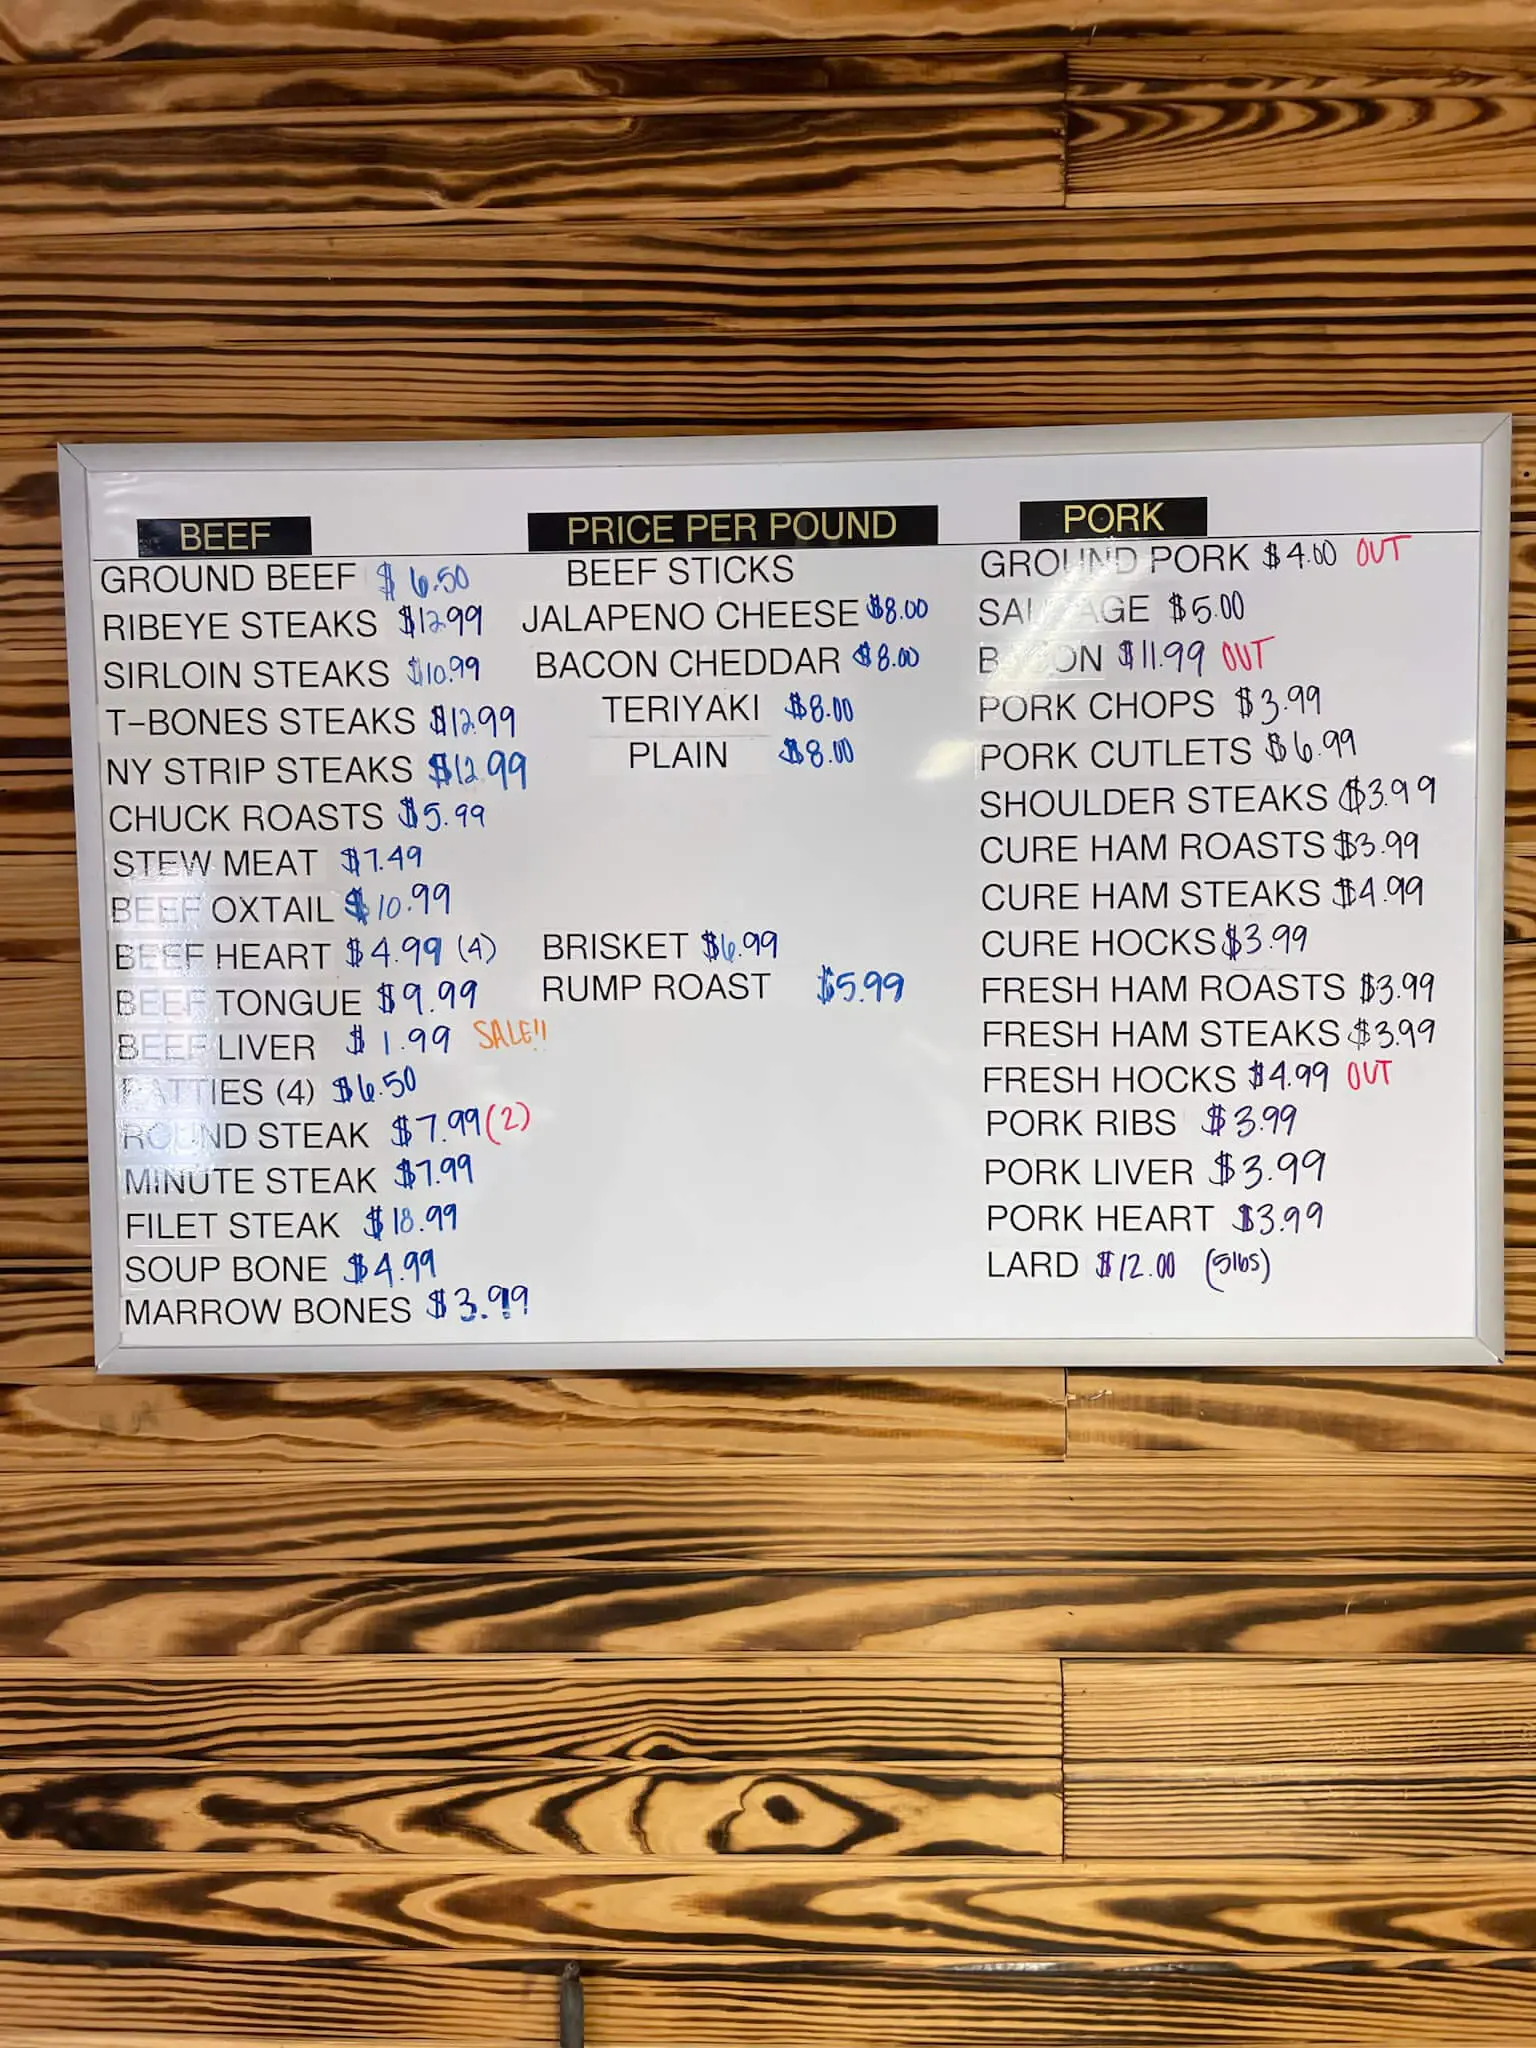 BEEF
GROUND BEEF $6.50
RIBEYE STEAKS $12.99
SIRLOIN STEAKS $10.99
T-BONES STEAKS $12.99
NY STRIP STEAKS $12.99
CHUCK ROASTS $5.99
STEW MEAT $7.49
BEEF OXTAIL $10.99
BEEF HEART $4.99 (4)
BEEF TONGUE $9.99
BEEF LIVER $1.99 SALE!!
PATTIES (4) $6.50
ROUND STEAK $7.99 (2)
MINUTE STEAK $7.99
FILET STEAK $18.99
SOUP BONE $4.99
MARROW BONES $3.99
PRICE PER POUND
BEEF STICKS
JALAPENO CHEESE $8.00
BACON CHEDDAR $8.00
TERIYAKI $8.00
PLAIN $8.00
BRISKET $6.99
RUMP ROAST $5.99
PORK
GROUND PORK $4.00 OUT
SAUSAGE $5.00
BACON $11.99 OUT
PORK CHOPS $3.99
PORK CUTLETS $6.99
SHOULDER STEAKS $3.99
CURE HAM ROASTS $3.99
CURE HAM STEAKS $4.99
CURE HOCKS $3.99
FRESH HAM ROASTS $3.99
FRESH HAM STEAKS $3.99
FRESH HOCKS $4.99 OUT
PORK RIBS $3.99
PORK LIVER $3.99
PORK HEART $3.99
LARD $12.00 (5lbs)